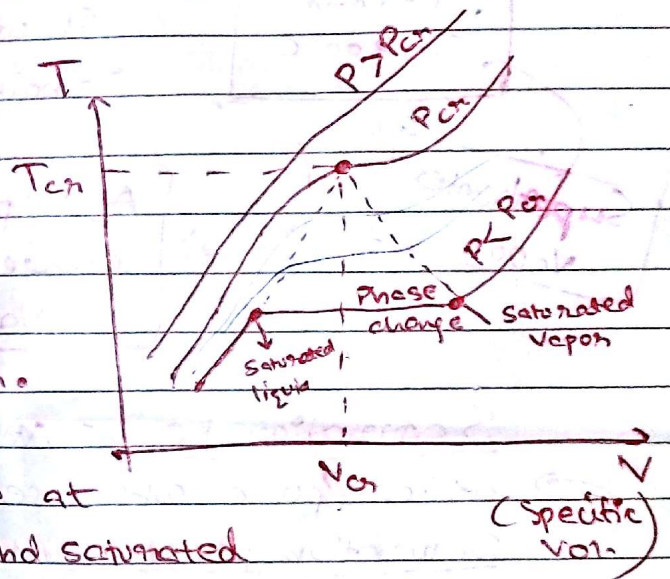 T
P > Pcr
Pcr
Tcr
P < Pcr
Phase
change
Saturated
Vapor
Saturated
liquid
Vcr
V
at
(Specific
Vol.)
nd saturated